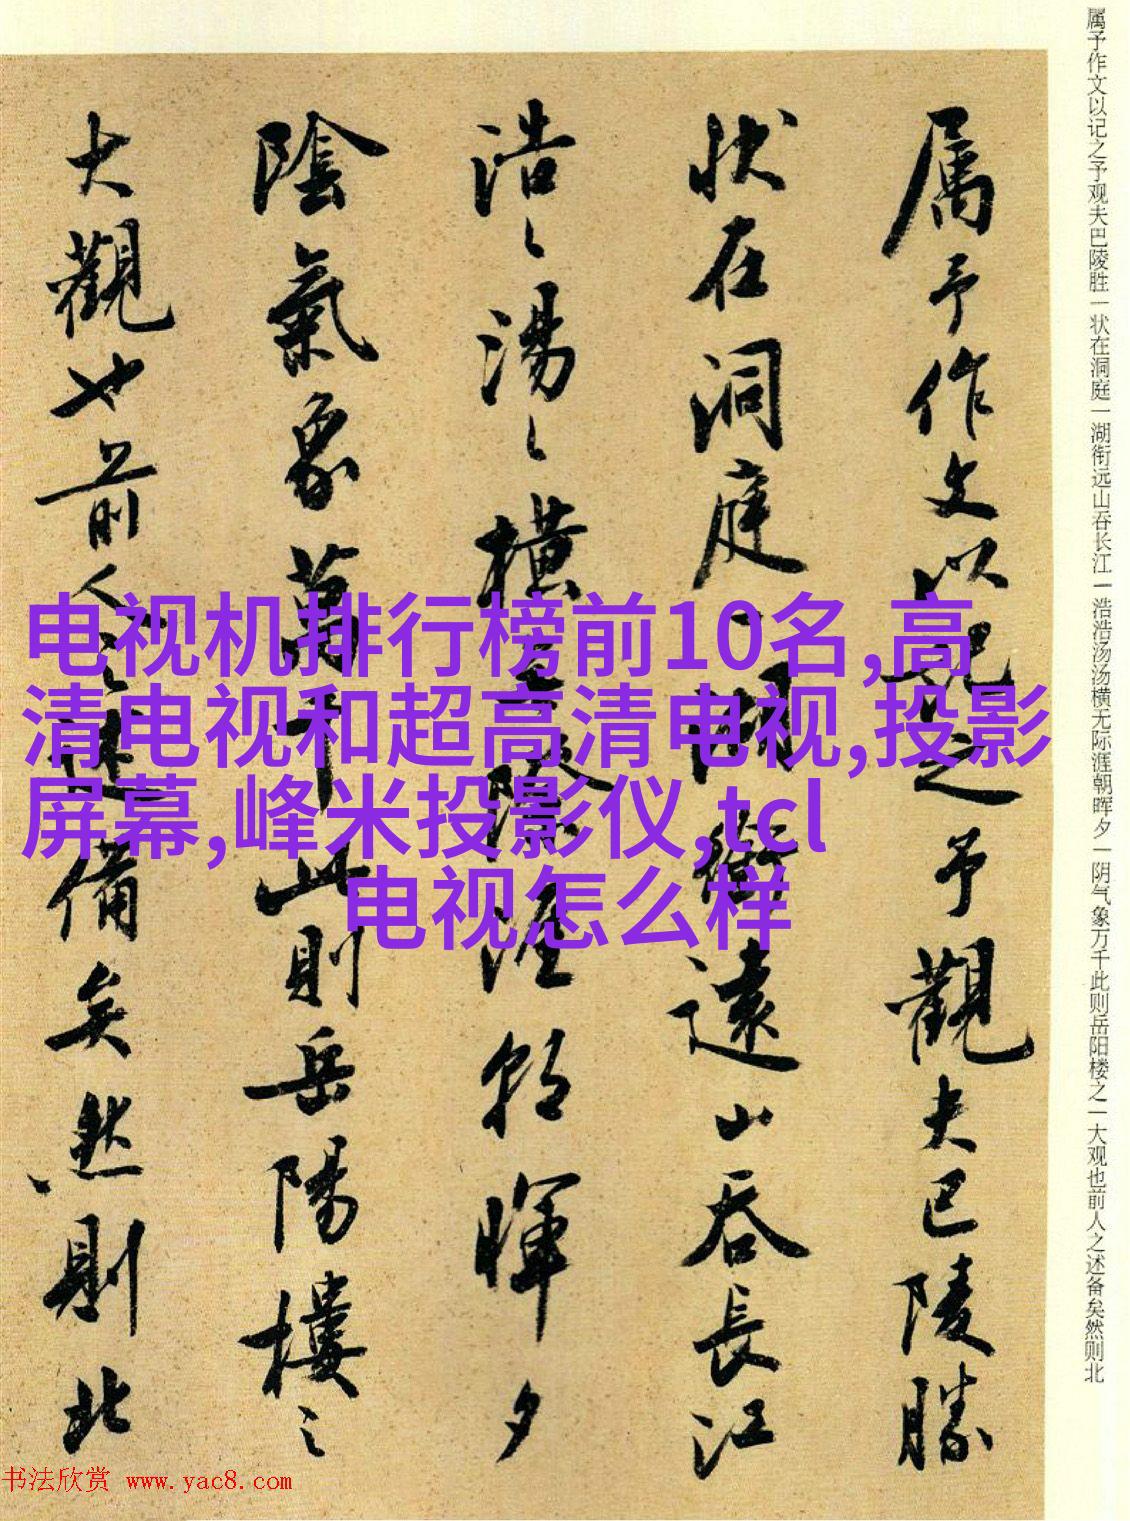 属予作文以记之予观夫巴陵胜一状在洞庭一湖衔远山吞长江一浩浩汤汤横无际涯朝晖夕一阴气象万千此则岳阳楼之一大观也前人之述备矣然则北
属予作文以記之予觀夫巴陵勝
状在洞庭一湖銜遠山吞長江
浩〻湯〻橫無際涯朝暉夕
陰氣象萬千此則岳陽樓之
大觀也前人之述備矣然則北
电视机排行榜前10名,高
清电视和超高清电视,投影
屏幕,峰米投影仪,tcl
电视怎么样
书法欣赏 www.yac8.com